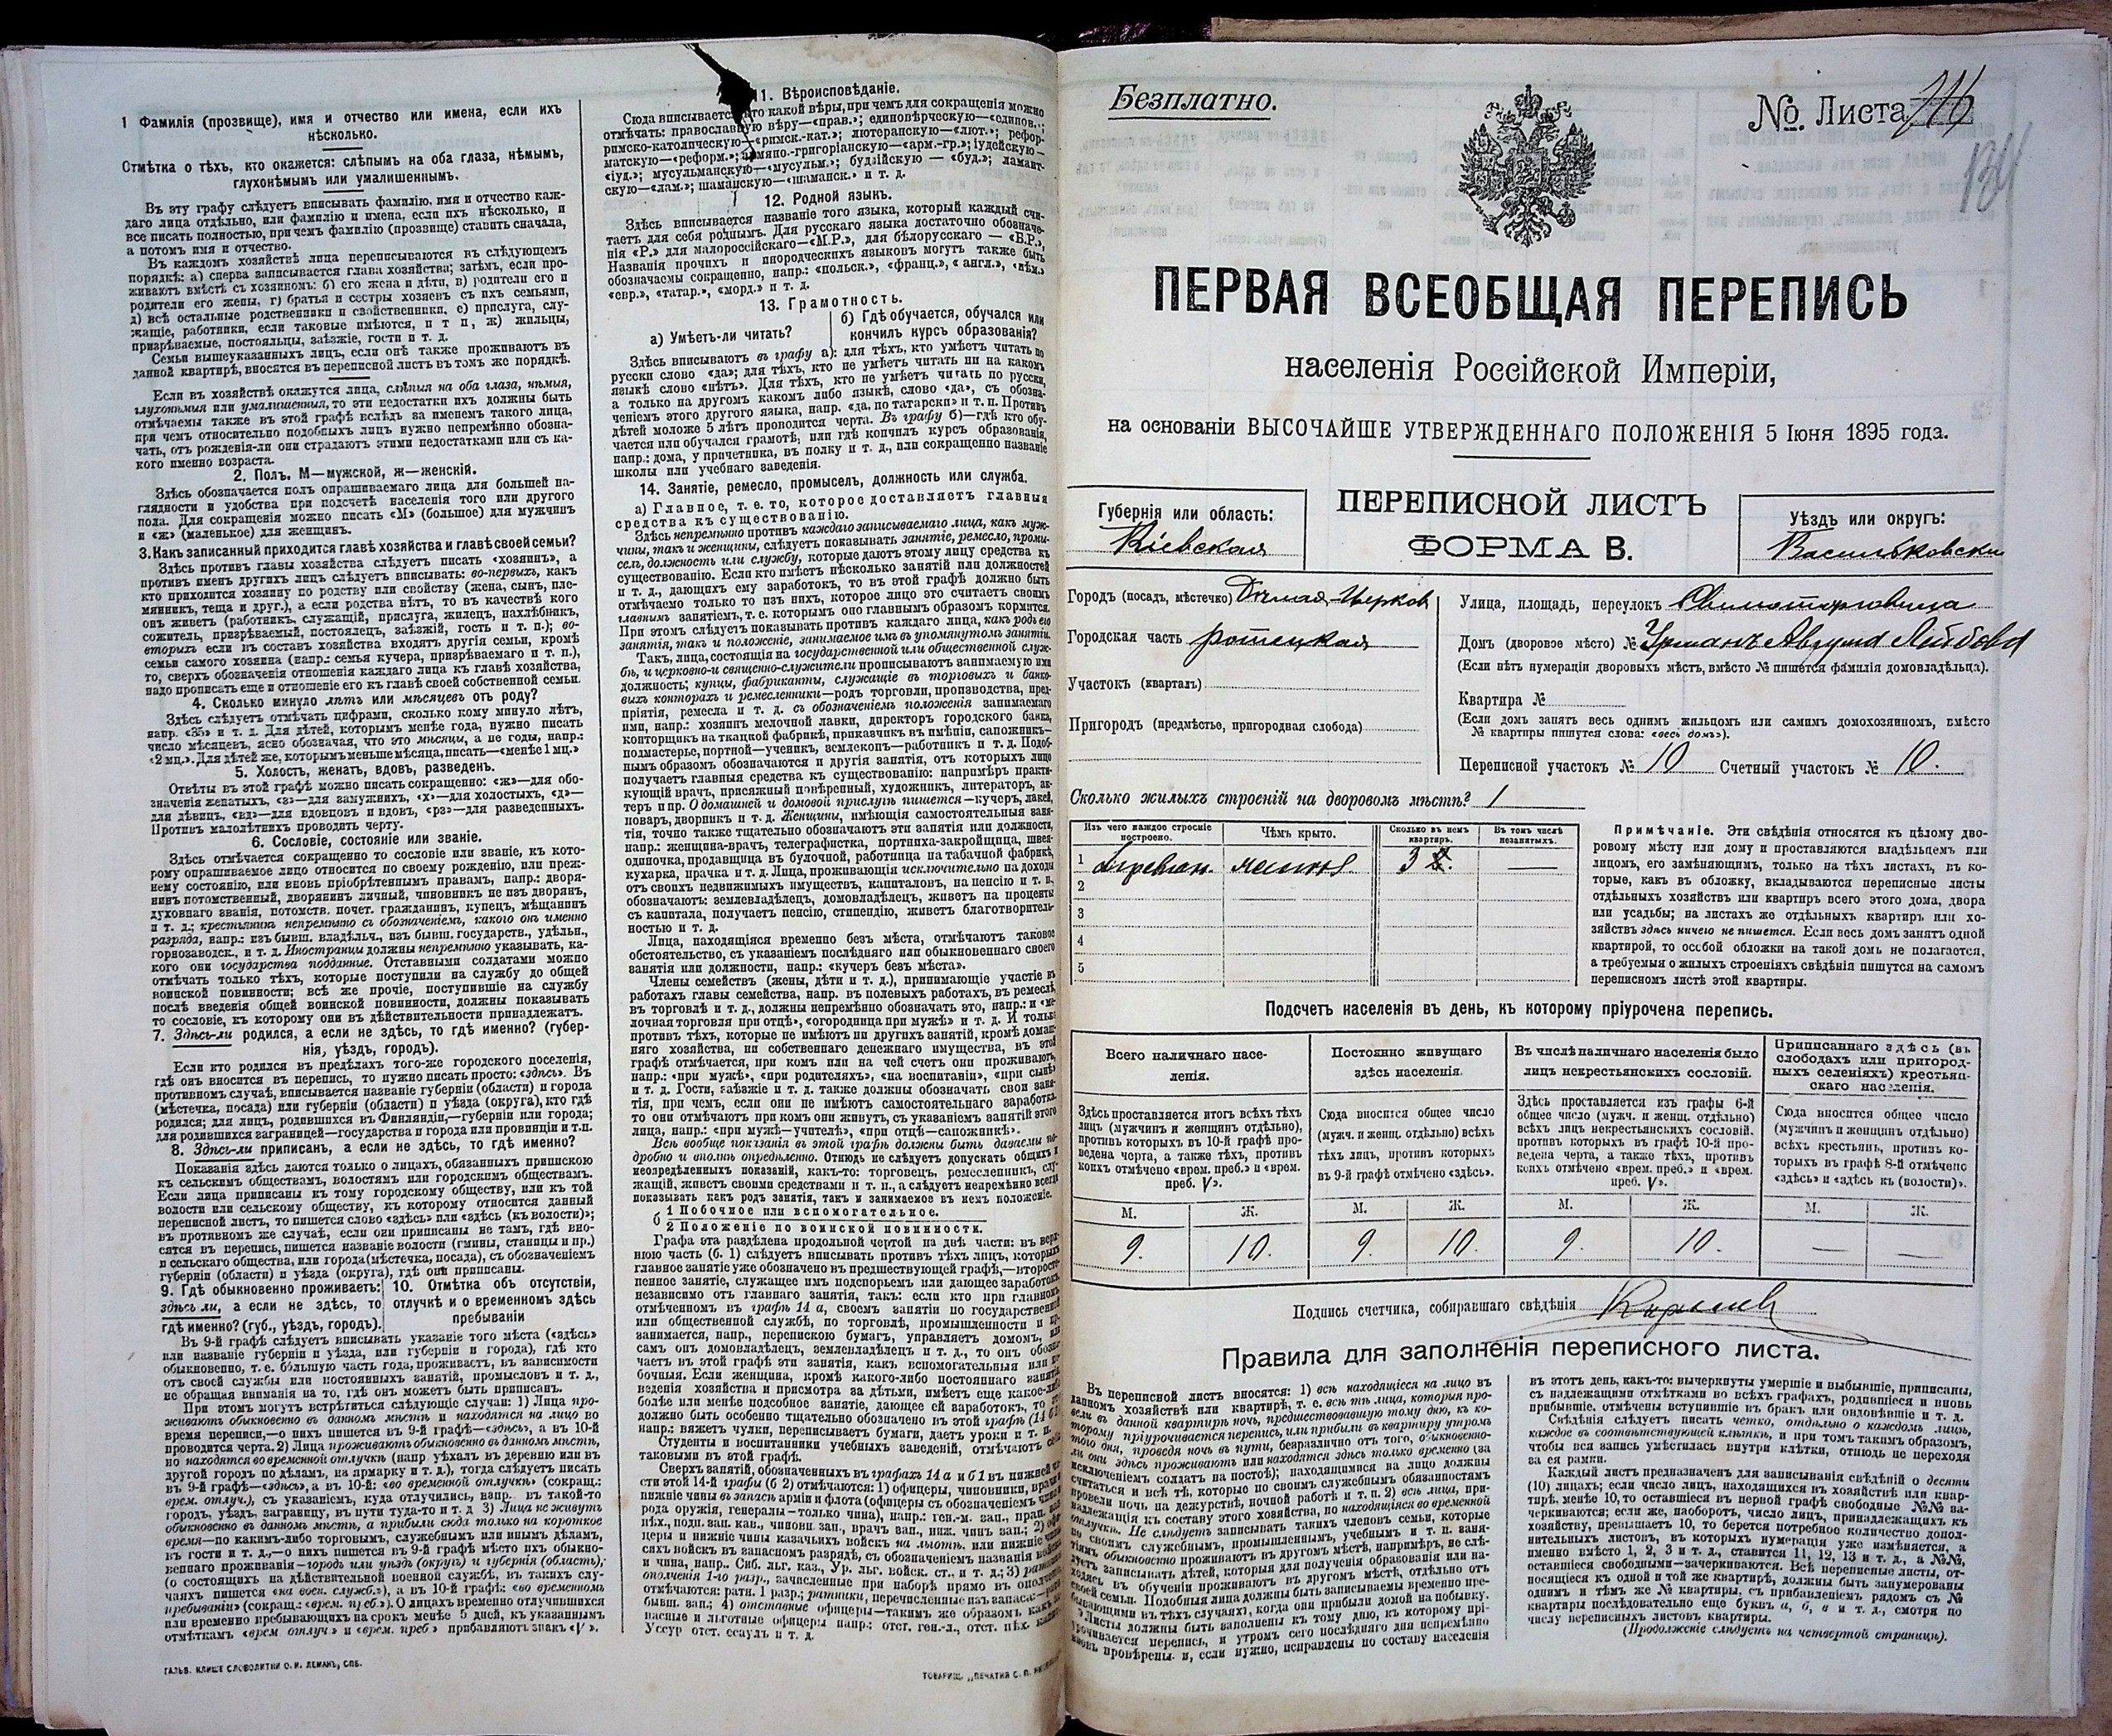 1 Фамилія (прозвище), имя и отчество или имена, если ихъ
нѣсколько.
Отмѣтка о тѣхъ, кто окажется: слѣпымъ на оба глаза, нѣмымъ,
глухонѣмымъ или умалишеннымъ.
Въ эту графу слѣдуетъ вписывать фамилію, имя и отчество каж-
даго лица отдѣльно, или фамилію и имена, если ихъ нѣсколько, и
все писать полностью, при чемъ фамилію (прозвище) ставить сначала,
а потомъ имя и отчество.
Въ каждомъ хозяйствѣ лица переписываются въ слѣдующемъ
порядкѣ: а) сперва записывается глава хозяйства; затѣмъ, если про-
живаютъ вмѣстѣ съ хозяиномъ: б) его жена и дѣти, в) родители его и
родители его жены, г) братья и сестры хозяевъ съ ихъ семьями,
д) всѣ остальные родственники и свойственники, е) прислуга, слу-
жащіе, работники, если таковые имѣются, и т п, ж) жильцы,
призрѣваемые, постояльцы, заѣзжіе, гости и т. д.
Семьи вышеуказанныхъ лицъ, если онѣ также проживаютъ въ
данной квартирѣ, вносятся въ переписной листъ въ томъ же порядкѣ.
Если въ хозяйствѣ окажутся лица, слѣпыя на оба глаза, нѣмыя,
глухонѣмыя или умалишенныя, то эти недостатки ихъ должны быть
отмѣчаемы также въ этой графѣ вслѣдъ за именемъ такого лица,
при чемъ относительно подобныхъ лицъ нужно непремѣнно обозна-
чать, отъ рожденія-ли они страдаютъ этими недостатками или съ ка-
кого именно возраста.
2. Полъ. М—мужской, ж—женскій.
Здѣсь обозначается полъ опрашиваемаго лица для большей на-
глядности и удобства при подсчетѣ населенія того или другого
пола. Для сокращенія можно писать «М» (большое) для мужчинъ
и «ж» (маленькое) для женщинъ.
3. Какъ записанный приходится главѣ хозяйства и главѣ своей семьи?
Здѣсь противъ главы хозяйства слѣдуетъ писать «хозяинъ», а
противъ именъ другихъ лицъ слѣдуетъ вписывать: во-первыхъ, какъ
кто приходится хозяину по родству или свойству (жена, сынъ, пле-
мянникъ, теща и друг.), а если родства нѣтъ, то въ качествѣ кого
онъ живетъ (работникъ, служащій, прислуга, жилецъ, нахлѣбникъ,
сожитель, призрѣваемый, постоялецъ, заѣзжій, гость и т. п.); во-
вторыхъ если въ составъ хозяйства входятъ другія семьи, кромѣ
семьи самого хозяина (напр.: семья кучера, призрѣваемаго и т. п.),
то, сверхъ обозначенія отношенія каждаго лица къ главѣ хозяйства,
надо прописать еще и отношеніе его къ главѣ своей собственной семьи.
4. Сколько минуло лѣтъ или мѣсяцевъ отъ роду?
Здѣсь слѣдуетъ отмѣчать цифрами, сколько кому минуло лѣтъ,
напр. «35» и т. д. Для дѣтей, которымъ менѣе года, нужно писать
число мѣсяцевъ, ясно обозначая, что это мѣсяцы, а не годы, напр.:
«2 мц.». Для дѣтей же, которымъ меньше мѣсяца, писать—«менѣе 1 мц.»
5. Холостъ, женатъ, вдовъ, разведенъ.
Отвѣты въ этой графѣ можно писать сокращенно: «ж»—для обо-
значенія женатыхъ, «з»—для замужнихъ, «х»—для холостыхъ, «д»—
для дѣвицъ, «вд»—для вдовцовъ и вдовъ, «рз»—для разведенныхъ.
Противъ малолѣтнихъ проводить черту.
6. Сословіе, состояніе или званіе.
Здѣсь отмѣчается сокращенно то сословіе или званіе, къ кото-
рому опрашиваемое лицо относится по своему рожденію, или преж-
нему состоянію, или вновь пріобрѣтеннымъ правамъ, напр.: дворя-
нинъ потомственный, дворянинъ личный, чиновникъ не изъ дворянъ,
духовнаго званія, потомств. почет. гражданинъ, купецъ, мѣщанинъ
и т. д.; крестьянинъ непремѣнно съ обозначеніемъ, какого онъ именно
разряда, напр.: изъ бывш. владѣльч., изъ бывш. государств., удѣльн.,
горнозаводск., и т. д. Иностранцы должны непремѣнно указывать, ка-
кого они государства подданные. Отставными солдатами можно
отмѣчать только тѣхъ, которые поступили на службу до общей
воинской повинности; всѣ же прочіе, поступившіе на службу
послѣ введенія общей воинской повинности, должны показывать
то сословіе, къ которому они въ дѣйствительности принадлежатъ.
7. Здѣсь-ли родился, а если не здѣсь, то гдѣ именно? (губер-
нія, уѣздъ, городъ).
Если кто родился въ предѣлахъ того-же городского поселенія,
гдѣ онъ вносится въ перепись, то нужно писать просто: «здѣсь». Въ
противномъ случаѣ, вписывается названіе губерніи (области) и города
(мѣстечка, посада) или губерніи (области) и уѣзда (округа), кто гдѣ
родился; для лицъ, родившихся въ Финляндіи,—губерніи или города;
для родившихся заграницей—государства и города или провинціи и т.п.
8. Здѣсь-ли приписанъ, а если не здѣсь, то гдѣ именно?
Показанія здѣсь даются только о лицахъ, обязанныхъ припискою
къ сельскимъ обществамъ, волостямъ или городскимъ обществамъ.
Если лица приписаны къ тому городскому обществу, или къ той
волости или сельскому обществу, къ которому относится данный
переписной листъ, то пишется слово «здѣсь» или «здѣсь (къ волости)»;
въ противномъ же случаѣ, если они приписаны не тамъ, гдѣ вно-
сятся въ перепись, пишется названіе волости (гмины, станицы и пр.)
и сельскаго общества, или города (мѣстечка, посада), съ обозначеніемъ
губерніи (области) и уѣзда (округа), гдѣ они приписаны.
9. Гдѣ обыкновенно проживаетъ:
здѣсь ли, а если не здѣсь, то
гдѣ именно? (губ., уѣздъ, городъ).
10. Отмѣтка объ отсутствіи,
отлучкѣ и о временномъ здѣсь
пребываніи
Въ 9-й графѣ слѣдуетъ вписывать указаніе того мѣста («здѣсь»
или названіе губерніи и уѣзда, или губерніи и города), гдѣ кто
обыкновенно, т. е. бо́льшую часть года, проживаетъ, въ зависимости
отъ своей службы или постоянныхъ занятій, промысловъ и т. д.,
не обращая вниманія на то, гдѣ онъ можетъ быть приписанъ.
При этомъ могутъ встрѣтиться слѣдующіе случаи: 1) Лица про-
живаютъ обыкновенно въ данномъ мѣстѣ и находятся на лицо во
время переписи,—о нихъ пишется въ 9-й графѣ—«здѣсь», а въ 10-й
проводится черта. 2) Лица проживаютъ обыкновенно въ данномъ мѣстѣ,
но находятся во временной отлучкѣ (напр уѣхалъ въ деревню или въ
другой городъ по дѣламъ, на ярмарку и т. д.), тогда слѣдуетъ писать
въ 9-й графѣ—«здѣсь», а въ 10-й: «во временной отлучкѣ» (сокращ.:
врем. отлуч.), съ указаніемъ, куда отлучились, напр. въ такой-то
городъ, уѣздъ, заграницу, въ пути туда-то и т. д 3) Лица не живутъ
обыкновенно въ данномъ мѣстѣ, а прибыли сюда только на короткое
время—по какимъ-либо торговымъ, служебнымъ или инымъ дѣламъ,
въ гости и т. д.,—о нихъ пишется въ 9-й графѣ мѣсто ихъ обыкно-
веннаго проживанія—городъ или уѣздъ (округъ) и губернія (область);
(о состоящихъ на дѣйствительной военной службѣ, въ такихъ слу-
чаяхъ пишется «на воен. служб.»), а въ 10-й графѣ: «во временномъ
пребываніи» (сокращ.: «врем. преб.»). О лицахъ временно отлучившихся
или временно пребывающихъ на срокъ менѣе 5 дней, къ указаннымъ
отмѣткамъ «врем отлуч» и «врем. преб» прибавляютъ знакъ «V».
ГАЛЬВ. КЛИШЕ СЛОВОЛИТНИ О. И. ЛЕМАНЪ, СПБ.
11. Вѣроисповѣданіе.
Сюда вписывается кто какой вѣры, при чемъ для сокращенія можно
отмѣчать: православную вѣру—«прав.»; единовѣрческую—«единов.»;
римско-католическую—«римск.-кат.»; лютеранскую—«лют.»; рефор-
матскую—«реформ.»; армяно-григоріанскую—«арм.-гр.»; іудейскую—
«іуд.»; мусульманскую—«мусульм.»; буддійскую — «буд.»; ламаит-
скую—«лам.»; шаманскую—«шаманск.» и т. д.
12. Родной языкъ.
Здѣсь вписывается названіе того языка, который каждый счи-
таетъ для себя роднымъ. Для русскаго языка достаточно обозначе-
нія «Р.» для малороссійскаго—«М.Р.», для бѣлорусскаго — «Б.Р.»,
Названія прочихъ и инородческихъ языковъ могутъ также быть
обозначаемы сокращенно, напр.: «польск.», «франц.», «англ.», «нѣм.»
«евр.», «татар.», «морд.» и т. д.
13. Грамотность.
а) Умѣетъ-ли читать?
б) Гдѣ обучается, обучался или
кончилъ курсъ образованія?
Здѣсь вписываютъ въ графу а): для тѣхъ, кто умѣетъ читать по
русски слово «да»; для тѣхъ, кто не умѣетъ читать ни на какомъ
языкѣ слово «нѣтъ». Для тѣхъ, кто не умѣетъ читать по русски,
а только на другомъ какомъ либо языкѣ, слово «да», съ обозна-
ченіемъ этого другого языка, напр. «да, по татарски» и т. п. Противъ
дѣтей моложе 5 лѣтъ проводится черта. Въ графу б)—гдѣ кто обу-
чается или обучался грамотѣ, или гдѣ кончилъ курсъ образованія,
напр.: дома, у причетника, въ полку и т. д., или сокращенно названіе
школы или учебнаго заведенія.
14. Занятіе, ремесло, промыселъ, должность или служба.
а) Главное, т. е. то, которое доставляетъ главныя
средства къ существованію.
Здѣсь непремѣнно противъ каждаго записываемаго лица, какъ муж-
чины, такъ и женщины, слѣдуетъ показывать занятіе, ремесло, промы-
селъ, должность или службу, которые даютъ этому лицу средства къ
существованію. Если кто имѣетъ нѣсколько занятій или должностей
и т. д., дающихъ ему заработокъ, то въ этой графѣ должно быть
отмѣчаемо только то изъ нихъ, которое лицо это считаетъ своимъ
главнымъ занятіемъ, т. е. которымъ оно главнымъ образомъ кормится.
При этомъ слѣдуетъ показывать противъ каждаго лица, какъ родъ его
занятія, такъ и положеніе, занимаемое имъ въ упомянутомъ занятіи.
Такъ, лица, состоящія на государственной или общественной служ-
бѣ, и церковно-и священно-служители прописываютъ занимаемую ими
должность; купцы, фабриканты, служащіе въ торговыхъ и банко-
выхъ конторахъ и ремесленники—родъ торговли, производства, пред-
пріятія, ремесла и т. д. съ обозначеніемъ положенія занимаемаго
ими, напр.: хозяинъ мелочной лавки, директоръ городского банка,
конторщикъ на ткацкой фабрикѣ, приказчикъ въ имѣніи, сапожникъ—
подмастерье, портной—ученикъ, землекопъ—работникъ и т. д. Подоб-
нымъ образомъ обозначаются и другія занятія, отъ которыхъ лицо
получаетъ главныя средства къ существованію: напримѣръ практи-
кующій врачъ, присяжный повѣренный, художникъ, литераторъ, ак-
теръ и пр. О домашней и домовой прислугѣ пишется—кучеръ, лакей,
поваръ, дворникъ и т. д. Женщины, имѣющія самостоятельныя заня-
тія, точно также тщательно обозначаютъ эти занятія или должности,
напр.: женщина-врачъ, телеграфистка, портниха-закройщица, швея-
одиночка, продавщица въ булочной, работница на табачной фабрикѣ,
кухарка, прачка и т. д. Лица, проживающія исключительно на доходы
отъ своихъ недвижимыхъ имуществъ, капиталовъ, на пенсію и т. п.,
обозначаютъ: землевладѣлецъ, домовладѣлецъ, живетъ на проценты
съ капитала, получаетъ пенсію, стипендію, живетъ благотворитель-
ностью и т. д.
Лица, находящіяся временно безъ мѣста, отмѣчаютъ таковое
обстоятельство, съ указаніемъ послѣдняго или обыкновеннаго своего
занятія или должности, напр.: «кучеръ безъ мѣста».
Члены семействъ (жены, дѣти и т. д.), принимающіе участіе въ
работахъ главы семейства, напр. въ полевыхъ работахъ, въ ремеслѣ,
въ торговлѣ и т. д., должны непремѣнно обозначать это, напр.: и «ме-
лочная торговля при отцѣ», «огородница при мужѣ» и т. д. И только
противъ тѣхъ, которые не имѣютъ ни другихъ занятій, кромѣ домаш-
няго хозяйства, ни собственно денежнаго имущества, въ этой
графѣ отмѣчается, при комъ или на чей счетъ они проживаютъ,
напр.: «при мужѣ», «при родителяхъ», «на воспитаніи», «при сынѣ»
и т. д. Гости, заѣзжіе и т. д. также должны обозначать свои заня-
тія, при чемъ, если они не имѣютъ самостоятельнаго заработка,
то они отмѣчаютъ при комъ они живутъ, съ указаніемъ занятій этого
лица, напр.: «при мужѣ—учителѣ», «при отцѣ—сапожникѣ».
Всѣ вообще показанія въ этой графѣ должны быть даваемы по-
дробно и вполнѣ опредѣленно. Отнюдь не слѣдуетъ допускать общихъ и
неопредѣленныхъ показаній, какъ-то: торговецъ, ремесленникъ, слу-
жащій, живетъ своими средствами и т. п., а слѣдуетъ непремѣнно всегда
показывать какъ родъ занятія, такъ и занимаемое въ немъ положеніе.
б 1 Побочное или вспомогательное.
2 Положеніе по воинской повинности.
Графа эта раздѣлена продольной чертой на двѣ части: въ верх-
нюю часть (б. 1) слѣдуетъ вписывать противъ тѣхъ лицъ, которыхъ
главное занятіе уже обозначено въ предшествующей графѣ,—второсте-
пенное занятіе, служащее имъ подспорьемъ или дающее заработокъ
независимо отъ главнаго занятія, такъ: если кто при главномъ
отмѣченномъ въ графѣ 14 а, своемъ занятіи по государственной
или общественной службѣ, по торговлѣ, промышленности и пр.
занимается, напр., перепискою бумагъ, управляетъ домомъ, или
самъ онъ домовладѣлецъ, землевладѣлецъ и т. д., то онъ обозна-
чаетъ въ этой графѣ эти занятія, какъ вспомогательныя или по-
бочныя. Если женщина, кромѣ какого-либо постояннаго занятія
веденія хозяйства и присмотра за дѣтьми, имѣетъ еще какое-либо
болѣе или менѣе подсобное занятіе, дающее ей заработокъ, то это
должно быть особенно тщательно обозначено въ этой графѣ (14 б)
напр.: вяжетъ чулки, переписываетъ бумаги, даетъ уроки и т. п.
Студенты и воспитанники учебныхъ заведеній, отмѣчаютъ себя
таковыми въ этой графѣ.
Сверхъ занятій, обозначенныхъ въ графахъ 14 а и б 1 въ нижней ча-
сти этой 14-й графы (б 2) отмѣчаются: 1) офицеры, чиновники, врачи и
нижніе чины въ запасѣ арміи и флота (офицеры съ обозначеніемъ чина и
рода оружія, генералы—только чина), напр.: ген-м. зап., прап. зап.
пѣх., подп. зап. кав., чиновн. зап., врачъ зап., ниж. чинъ зап.; 2) офи-
церы и нижніе чины казачьихъ войскъ на льготѣ. или нижніе чины
сихъ войскъ въ запасномъ разрядѣ, съ обозначеніемъ названія войска
и чина, напр.. Сиб. льг. каз., Ур. льг. войск. ст., и т. д.; 3) ратники
ополченія 1-го разр., зачисленные при наборѣ прямо въ ополченіе
отмѣчаются: ратн. 1 разр.; ратники, перечисленные изъ запаса:
бывш. зап.; 4) отставные офицеры—такимъ же образомъ какъ за-
пасные и льготные офицеры напр.: отст. ген-л., отст. пѣх. капит.
Уссур отст. есаулъ и т. д.
ТОВАРИЩ. „ПЕЧАТНЯ С. П.
Безплатно.
№ Листа 716
134
ПЕРВАЯ ВСЕОБЩАЯ ПЕРЕПИСЬ
населенія Россійской Имперіи,
на основаніи ВЫСОЧАЙШЕ УТВЕРЖДЕННАГО ПОЛОЖЕНІЯ 5 Іюня 1895 года.
ПЕРЕПИСНОЙ ЛИСТЪ
ФОРМА В.
Губернія или область:
Кіевская
Уѣздъ или округъ:
Васильковски
Городъ (посадъ, мѣстечко) Бѣлая-Церковь
Городская часть ротецкая
Участокъ (кварталъ)
Пригородъ (предмѣстье, пригородная слобода)
Улица, площадь, переулокъ
Домъ (дворовое мѣсто) № Урманъ Авруша Лейбовъ
(Если нѣтъ нумераціи дворовыхъ мѣстъ, вмѣсто № пишется фамилія домовладѣльца).
Квартира №
(Если домъ занятъ весь однимъ жильцомъ или самимъ домохозяиномъ, вмѣсто
№ квартиры пишутся слова: «весь домъ»).
Переписной участокъ № 10 Счетный участокъ № 10.
Сколько жилыхъ строеній на дворовомъ мѣстѣ? 1
Изъ чего каждое строеніе построено.
Чѣмъ крыто.
Сколько въ немъ квартиръ.
Въ томъ числѣ незанятыхъ.
1 Деревян. желѣзо. 3 —
2
3
4
5
Примѣчаніе. Эти свѣдѣнія относятся къ цѣлому дво-
ровому мѣсту или дому и проставляются владѣльцемъ или
лицомъ, его замѣняющимъ, только на тѣхъ листахъ, въ ко-
торые, какъ въ обложку, вкладываются переписные листы
отдѣльныхъ хозяйствъ или квартиръ всего этого дома, двора
или усадьбы; на листахъ же отдѣльныхъ квартиръ или хо-
зяйствъ здѣсь ничего не пишется. Если весь домъ занятъ одной
квартирой, то особой обложки на такой домъ не полагается,
а требуемыя о жилыхъ строеніяхъ свѣдѣнія пишутся на самомъ
переписномъ листѣ этой квартиры.
Подсчетъ населенія въ день, къ которому пріурочена перепись.
Всего наличнаго насе-
ленія.
Здѣсь проставляется итогъ всѣхъ тѣхъ
лицъ (мужчинъ и женщинъ отдѣльно),
противъ которыхъ въ 10-й графѣ про-
ведена черта, а также тѣхъ, противъ
коихъ отмѣчено «врем. преб.» и «врем.
преб. V».
Постоянно живущаго
здѣсь населенія.
Сюда вносится общее число
(мужч. и женщ. отдѣльно) всѣхъ
тѣхъ лицъ, противъ которыхъ
въ 9-й графѣ отмѣчено «здѣсь».
Въ числѣ наличнаго населенія было
лицъ некрестьянскихъ сословій.
Здѣсь проставляется изъ графы 6-й
общее число (мужч. и женщ. отдѣльно)
всѣхъ лицъ некрестьянскихъ сословій.
противъ которыхъ въ графѣ 10-й про-
ведена черта, а также тѣхъ, противъ
коихъ отмѣчено «врем. преб.» и «врем.
преб. V».
Приписаннаго здѣсь (въ
слободахъ или пригород-
ныхъ селеніяхъ) крестьян-
скаго населенія.
Сюда вносится общее число
(мужчинъ и женщинъ отдѣльно)
всѣхъ крестьянъ, противъ ко-
торыхъ въ графѣ 8-й отмѣчено
«здѣсь» и «здѣсь къ (волости)».
М. Ж. М. Ж. М. Ж. М. Ж.
9. 10. 9. 10. 9. 10. — —
Подпись счетчика, собиравшаго свѣдѣнія
Правила для заполненія переписного листа.
Въ переписной листъ вносятся: 1) всѣ находящіеся на лицо въ
данномъ хозяйствѣ или квартирѣ, т. е. всѣ тѣ лица, которыя про-
вели въ данной квартирѣ ночь, предшествовавшую тому дню, къ ко-
торому пріурочивается перепись, или прибыли въ квартиру утромъ
того дня, проведя ночь въ пути, безразлично отъ того, обыкновенно-
ли они здѣсь проживаютъ или находятся здѣсь только временно (за
исключеніемъ солдатъ на постоѣ); находящимися на лицо должны
считаться и всѣ тѣ, которые по своимъ служебнымъ обязанностямъ
провели ночь на дежурствѣ, ночной работѣ и т. п. 2) всѣ лица, при-
надлежащія къ составу этого хозяйства, но находящіяся во временной
отлучкѣ. Не слѣдуетъ записывать такихъ членовъ семьи, которые
по своимъ служебнымъ, промышленнымъ, учебнымъ и т. п. заня-
тіямъ обыкновенно проживаютъ въ другомъ мѣстѣ, напримѣръ, не слѣ-
дуетъ записывать дѣтей, которыя для полученія образованія или на-
ходясь въ обученіи проживаютъ въ другомъ мѣстѣ, отдѣльно отъ
своей семьи. Подобныя лица должны быть записываемы временно пре-
бывающими въ тѣхъ случаяхъ, когда они прибыли домой на побывку.
Листы должны быть заполнены къ тому дню, къ которому прі-
урочивается перепись, и утромъ сего послѣдняго дня непремѣнно
вновь провѣрены. и, если нужно, исправлены по составу населенія
въ этотъ день, какъ-то: вычеркнуты умершіе и выбывшіе, приписаны,
съ надлежащими отмѣтками во всѣхъ графахъ, родившіеся и вновь
прибывшіе, отмѣчены вступившіе въ бракъ или овдовѣвшіе и т. д.
Свѣдѣнія слѣдуетъ писать четко, отдѣльно о каждомъ лицѣ,
каждое въ соотвѣтствующей клѣткѣ, и при томъ такимъ образомъ,
чтобы вся запись умѣстилась внутри клѣтки, отнюдь не переходя
за ея рамки.
Каждый листъ предназначенъ для записыванія свѣдѣній о десяти
(10) лицахъ; если число лицъ, находящихся въ хозяйствѣ или квар-
тирѣ, менѣе 10, то оставшіеся въ первой графѣ свободные №№ за-
черкиваются; если же, наоборотъ, число лицъ, принадлежащихъ къ
хозяйству, превышаетъ 10, то берется потребное количество допол-
нительныхъ листовъ, въ которыхъ нумерація уже измѣняется, а
именно вмѣсто 1, 2, 3 и т. д., ставится 11, 12, 13 и т. д., а №№,
оставшіеся свободными—зачеркиваются. Всѣ переписные листы, от-
носящіеся къ одной и той же квартирѣ, должны быть занумерованы
однимъ и тѣмъ же № квартиры, съ прибавленіемъ рядомъ съ №
квартиры послѣдовательно еще буквъ а, б, в и т. д., смотря по
числу переписныхъ листовъ квартиры.
(Продолженіе слѣдуетъ на четвертой страницѣ).